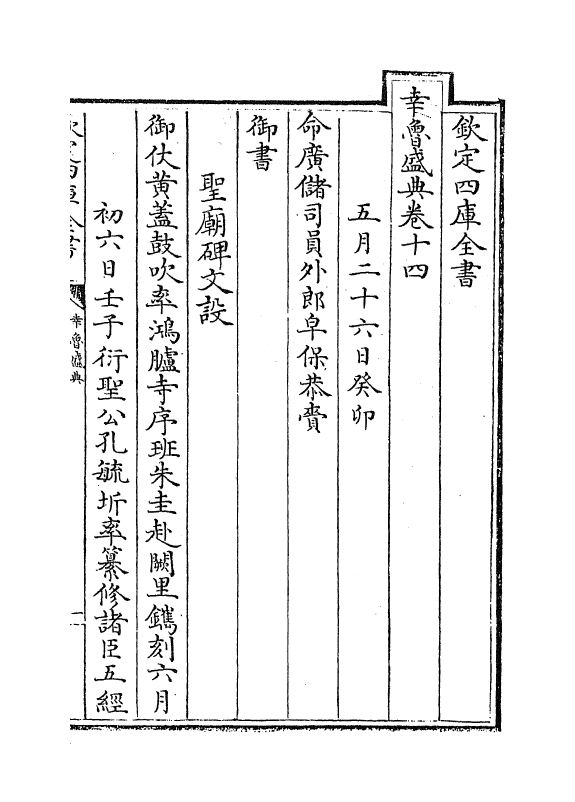 欽定四庫全書
幸魯盛典卷十四
五月二十六日癸卯
命廣儲司員外郎皁保恭賫
御書
聖廟碑文設
御仗黃蓋鼓吹率鴻臚寺序班朱圭赴闕里鐫刻六月
初六日壬子衍聖公孔毓圻率纂修諸臣五經
欽定四庫全書
幸魯盛典
一